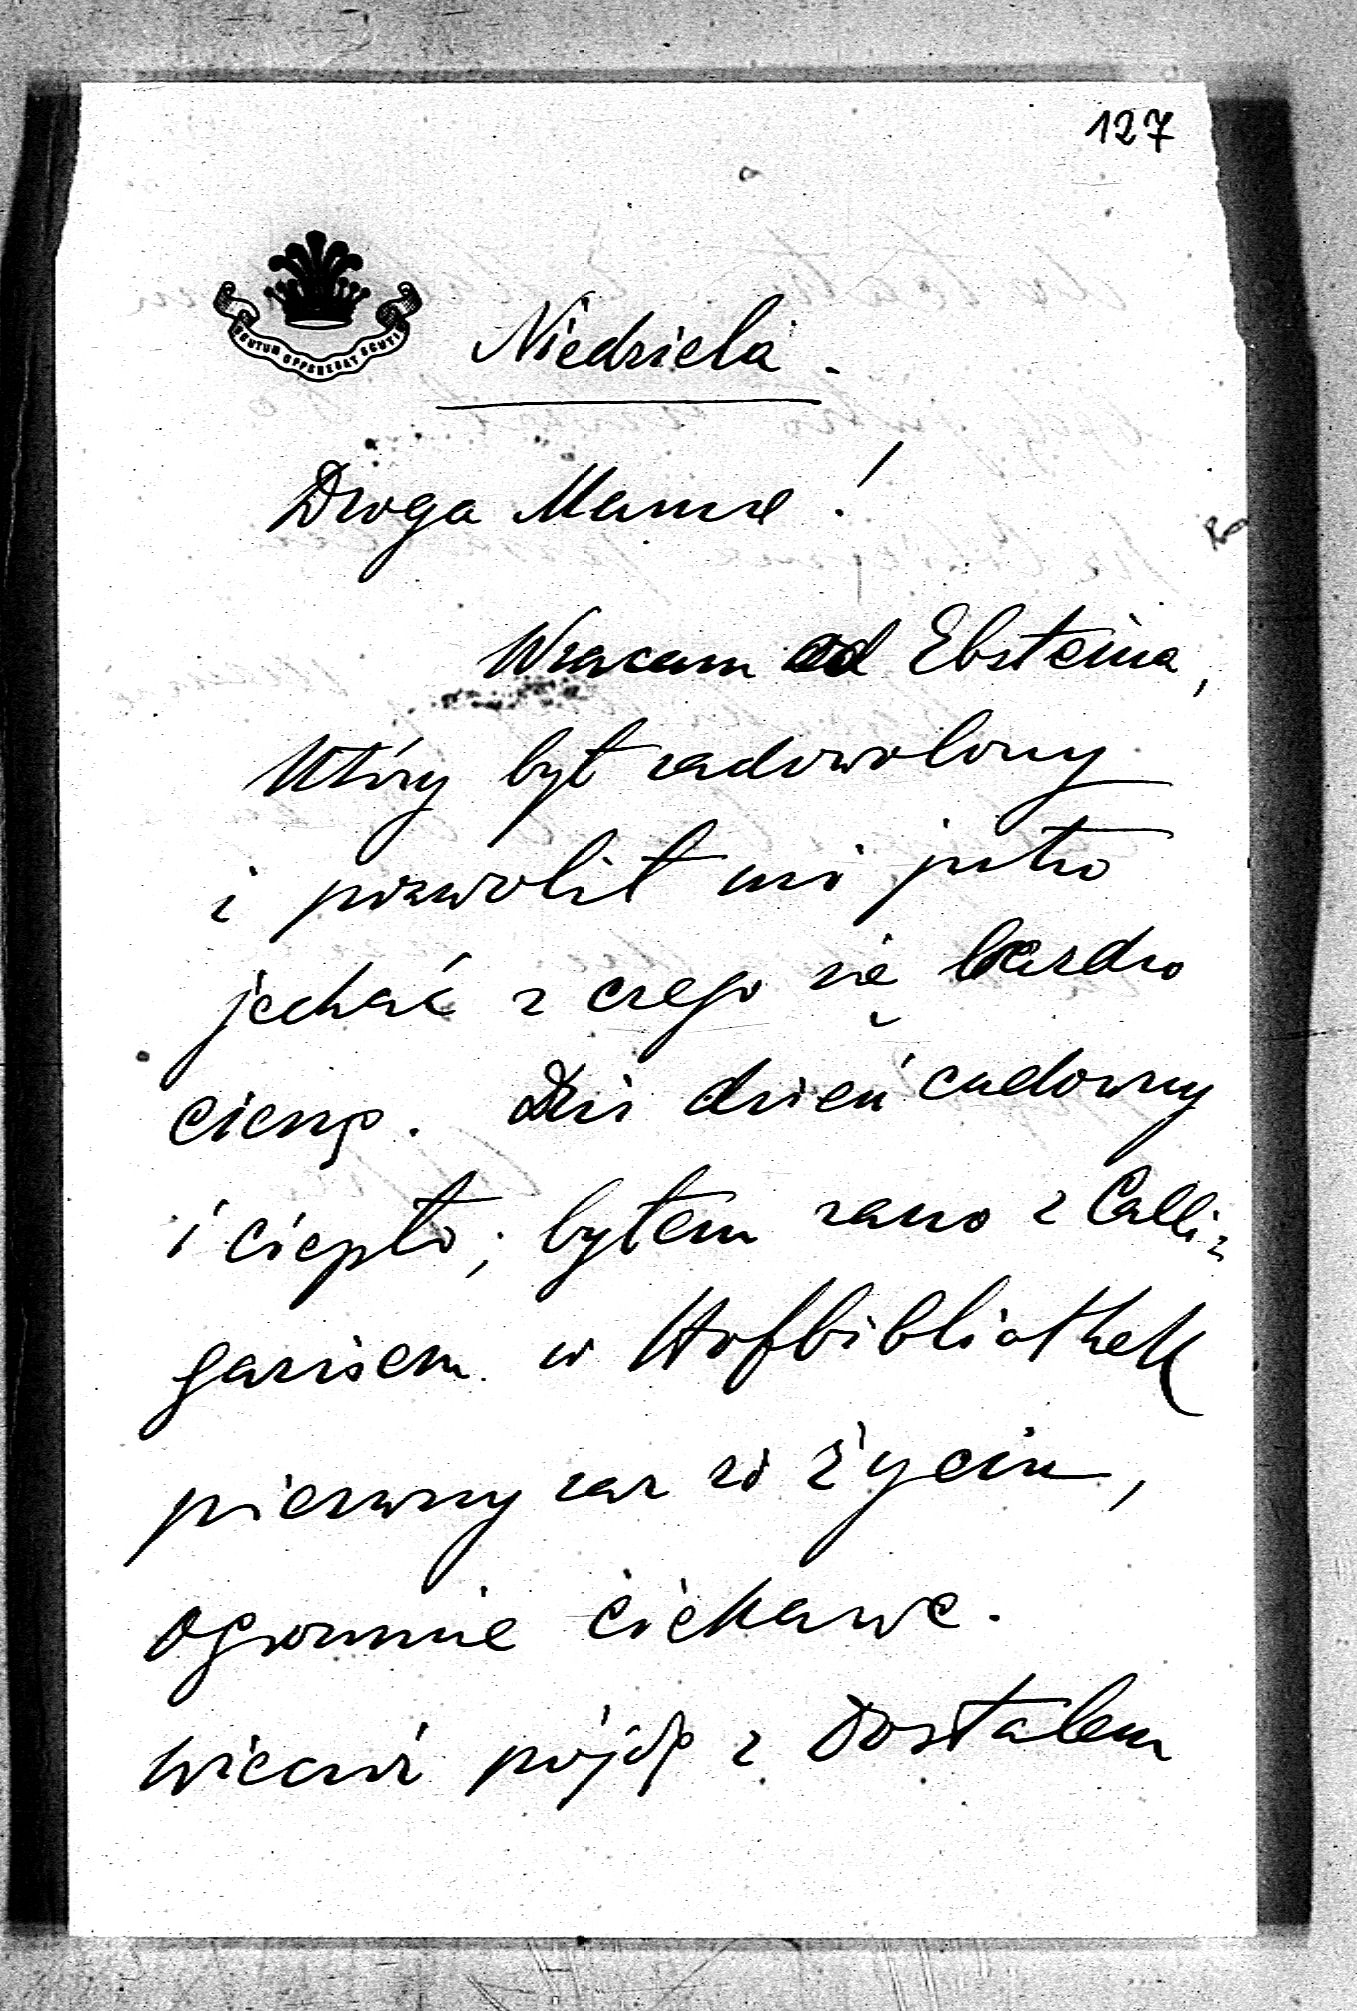 127
SCUTUM OPPONEBAT SCUTIS
Niedziela.
Droga Mamo!
Wracam od Ebsteina,
który był zadowolony
i pozwolił mi jutro
jechać z czego się bardzo
cieszę. Dziś dzień cudowny
i ciepło; byłem rano z Calli-
garisem w Hofbibliothek
pierwszy raz w życiu,
ogromnie ciekawe.
Wieczór pójdę z Dostalem